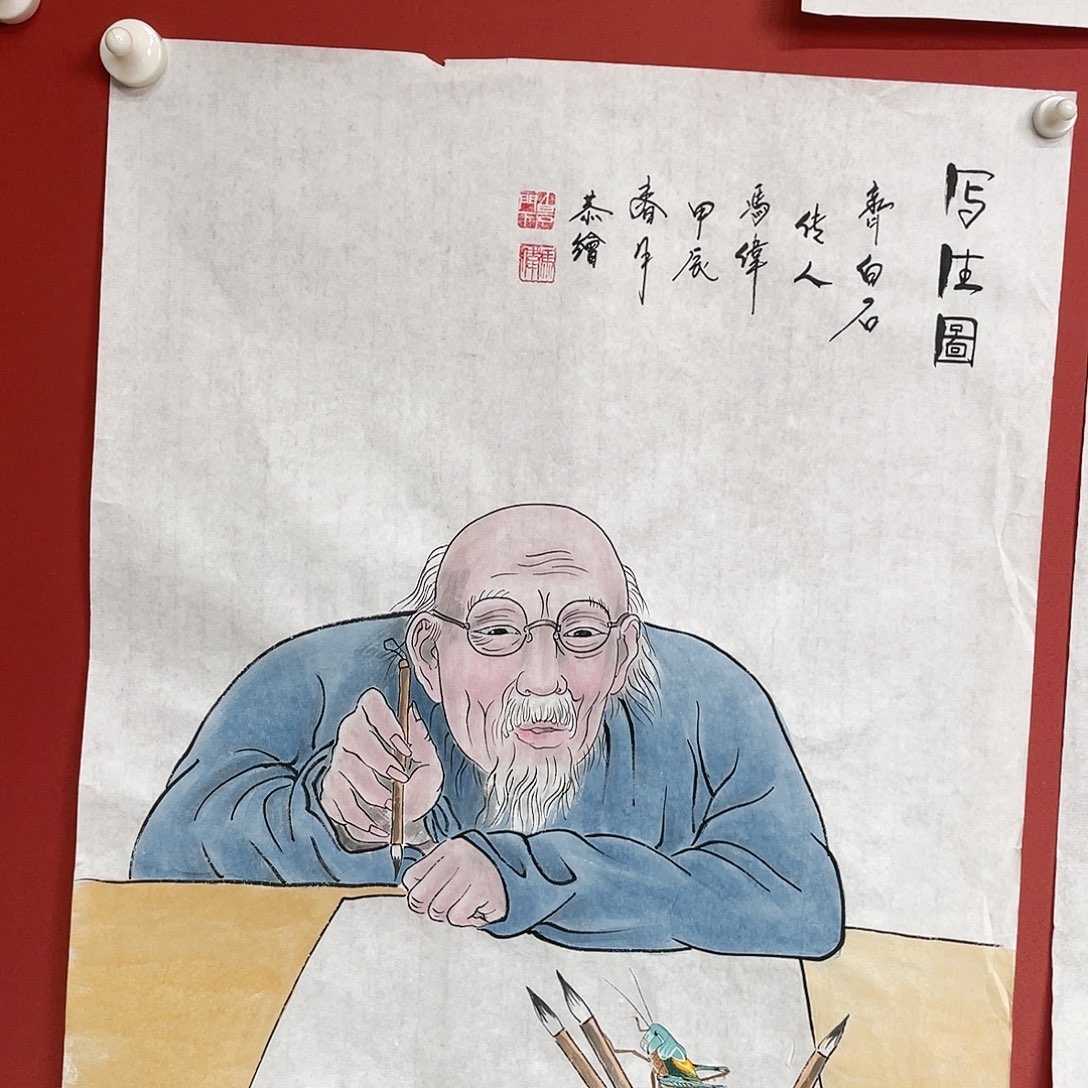 写生圖
齊白石
传人
馮偉
甲辰
春月
恭繪